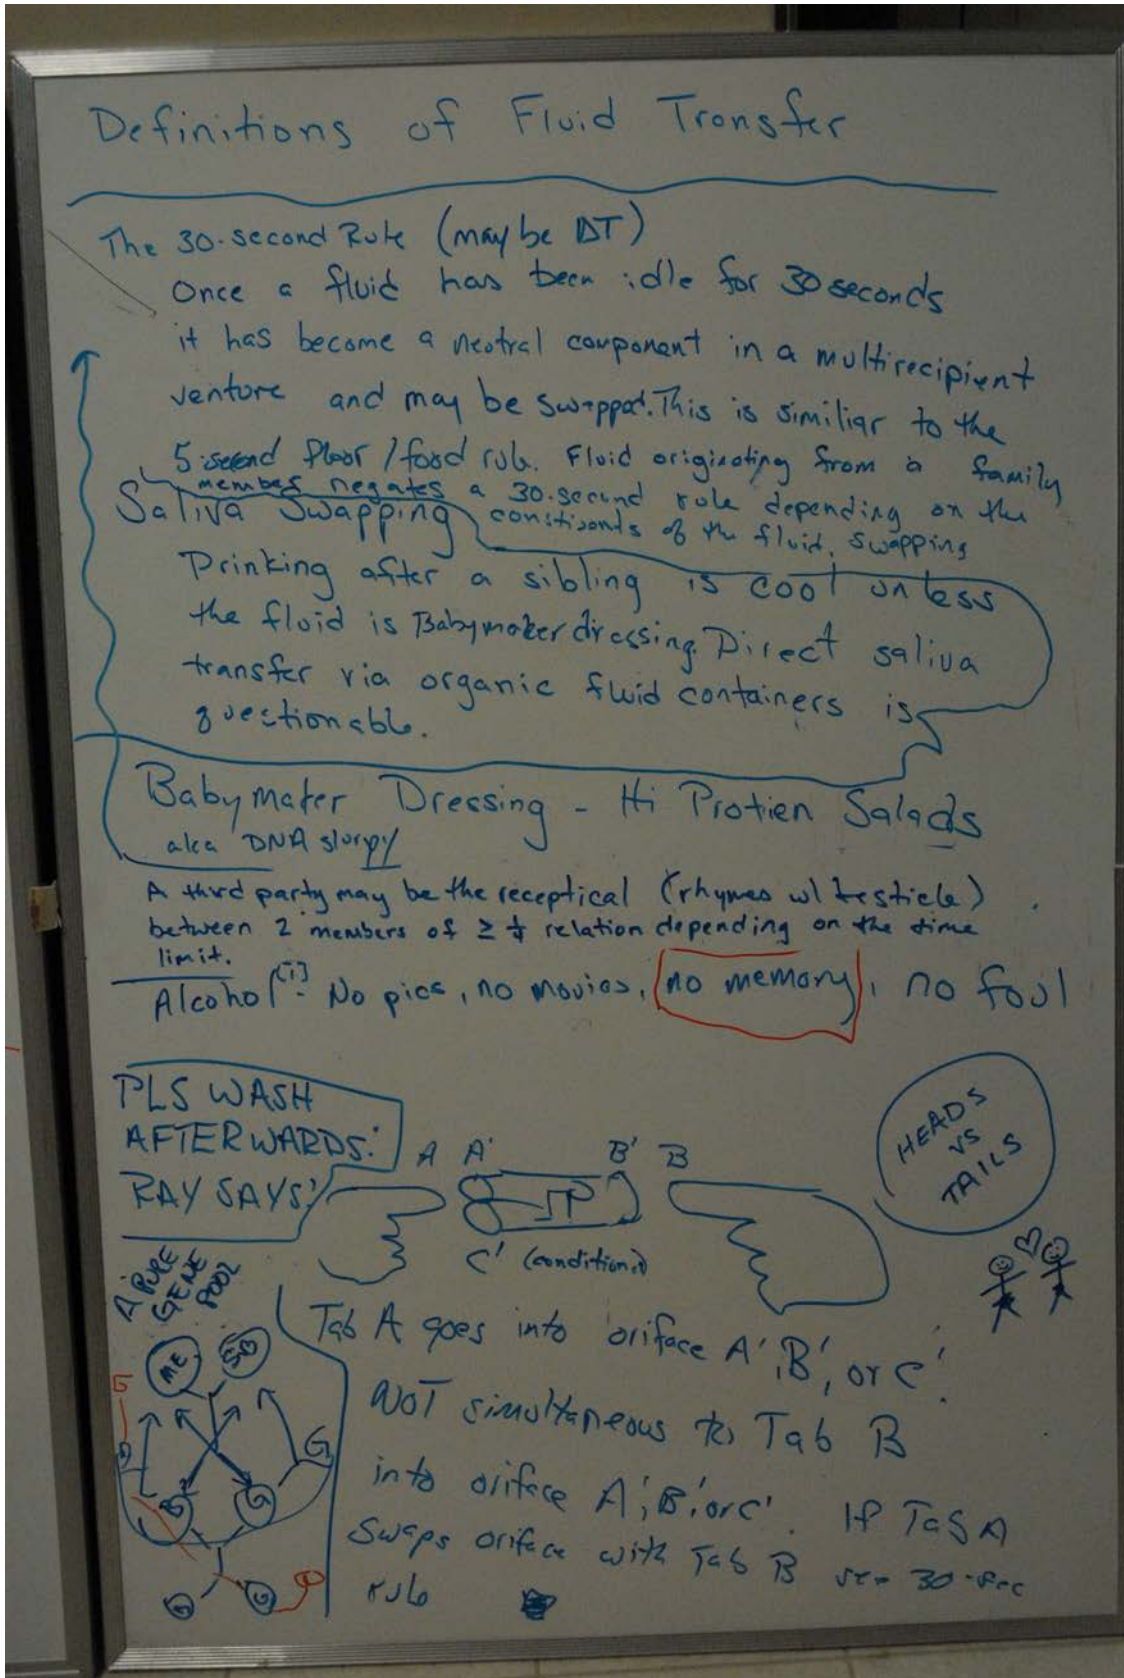 Definitions of Fluid Transfer
The 30-second Rule (may be ΔT)
Once a fluid has been idle for 30 seconds
it has become a neutral component in a multirecipient
venture and may be swapped. This is similiar to the
5 second floor / food rule. Fluid originating from a family
member negates a 30-second rule depending on the
of the fluid. swapping
Saliva Swapping
Drinking after a sibling is cool unless
the fluid is Babymaker dressing. Direct saliva
transfer via organic fluid containers is
questionable.
Babymaker Dressing - Hi Protien Salads
aka DNA slurpy
A third party may be the receptical (rhymes w/ testicle)
between 2 members of ≥ ¼ relation depending on the time
limit.
Alcohol [i] - No pics, no movies, no memory, no foul
PLS WASH
AFTERWARDS:
RAY SAYS!
HEADS
VS
TAILS
A A' B' B
C' (conditional)
A PURE
GENE
POOL
ME
G
G
Tab A goes into oriface A', B', or C'.
NOT simultaneous to Tab B
into oriface A', B', or C'. If Tab A
Swaps oriface with Tab B 30-sec
rule